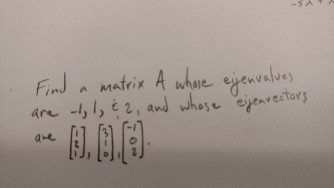 -5λ + 
Find a matrix A whose eigenvalues
are -1, 1, & 2, and whose eigenvectors
are [1 2 1], [3 1 0], [-1 0 2].